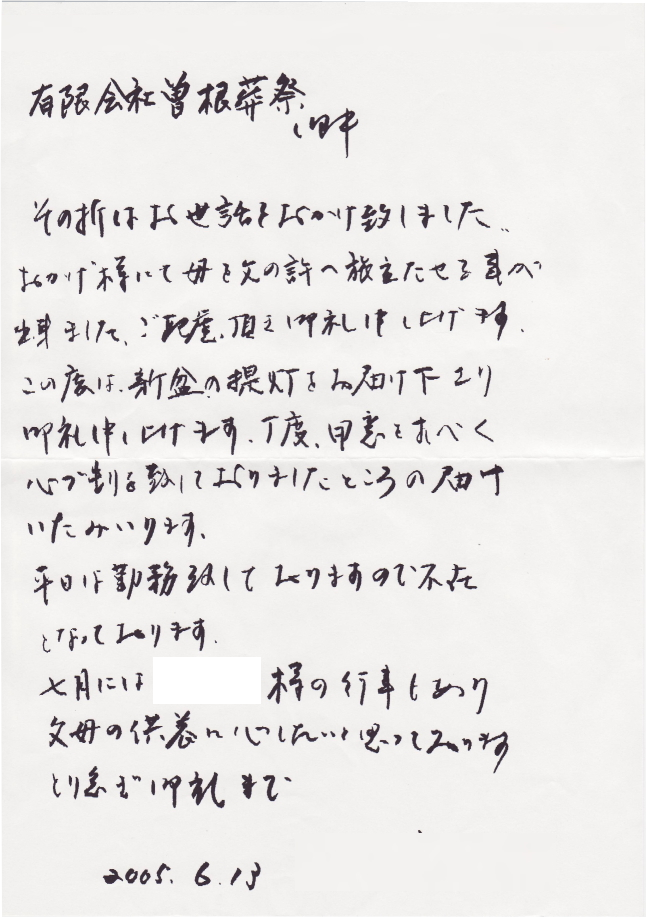 有限会社曽根葬祭
御中
その折はお世話をおかけ致しました。
おかげ様にて母を父の許へ旅立たせる事が
出来ました、ご配慮、頂き御礼申し上げます。
この度は、新盆の提灯をお届け下さり
御礼申し上げます。丁度、用意をすべく
心づもり致しておりましたところの届け
いたみいります。
平日は勤務致しておりますので不在
となっております。
七月には 様の行事もあり
父母の供養に心したいと思っております
とり急ぎ御礼まで
2005.6.13